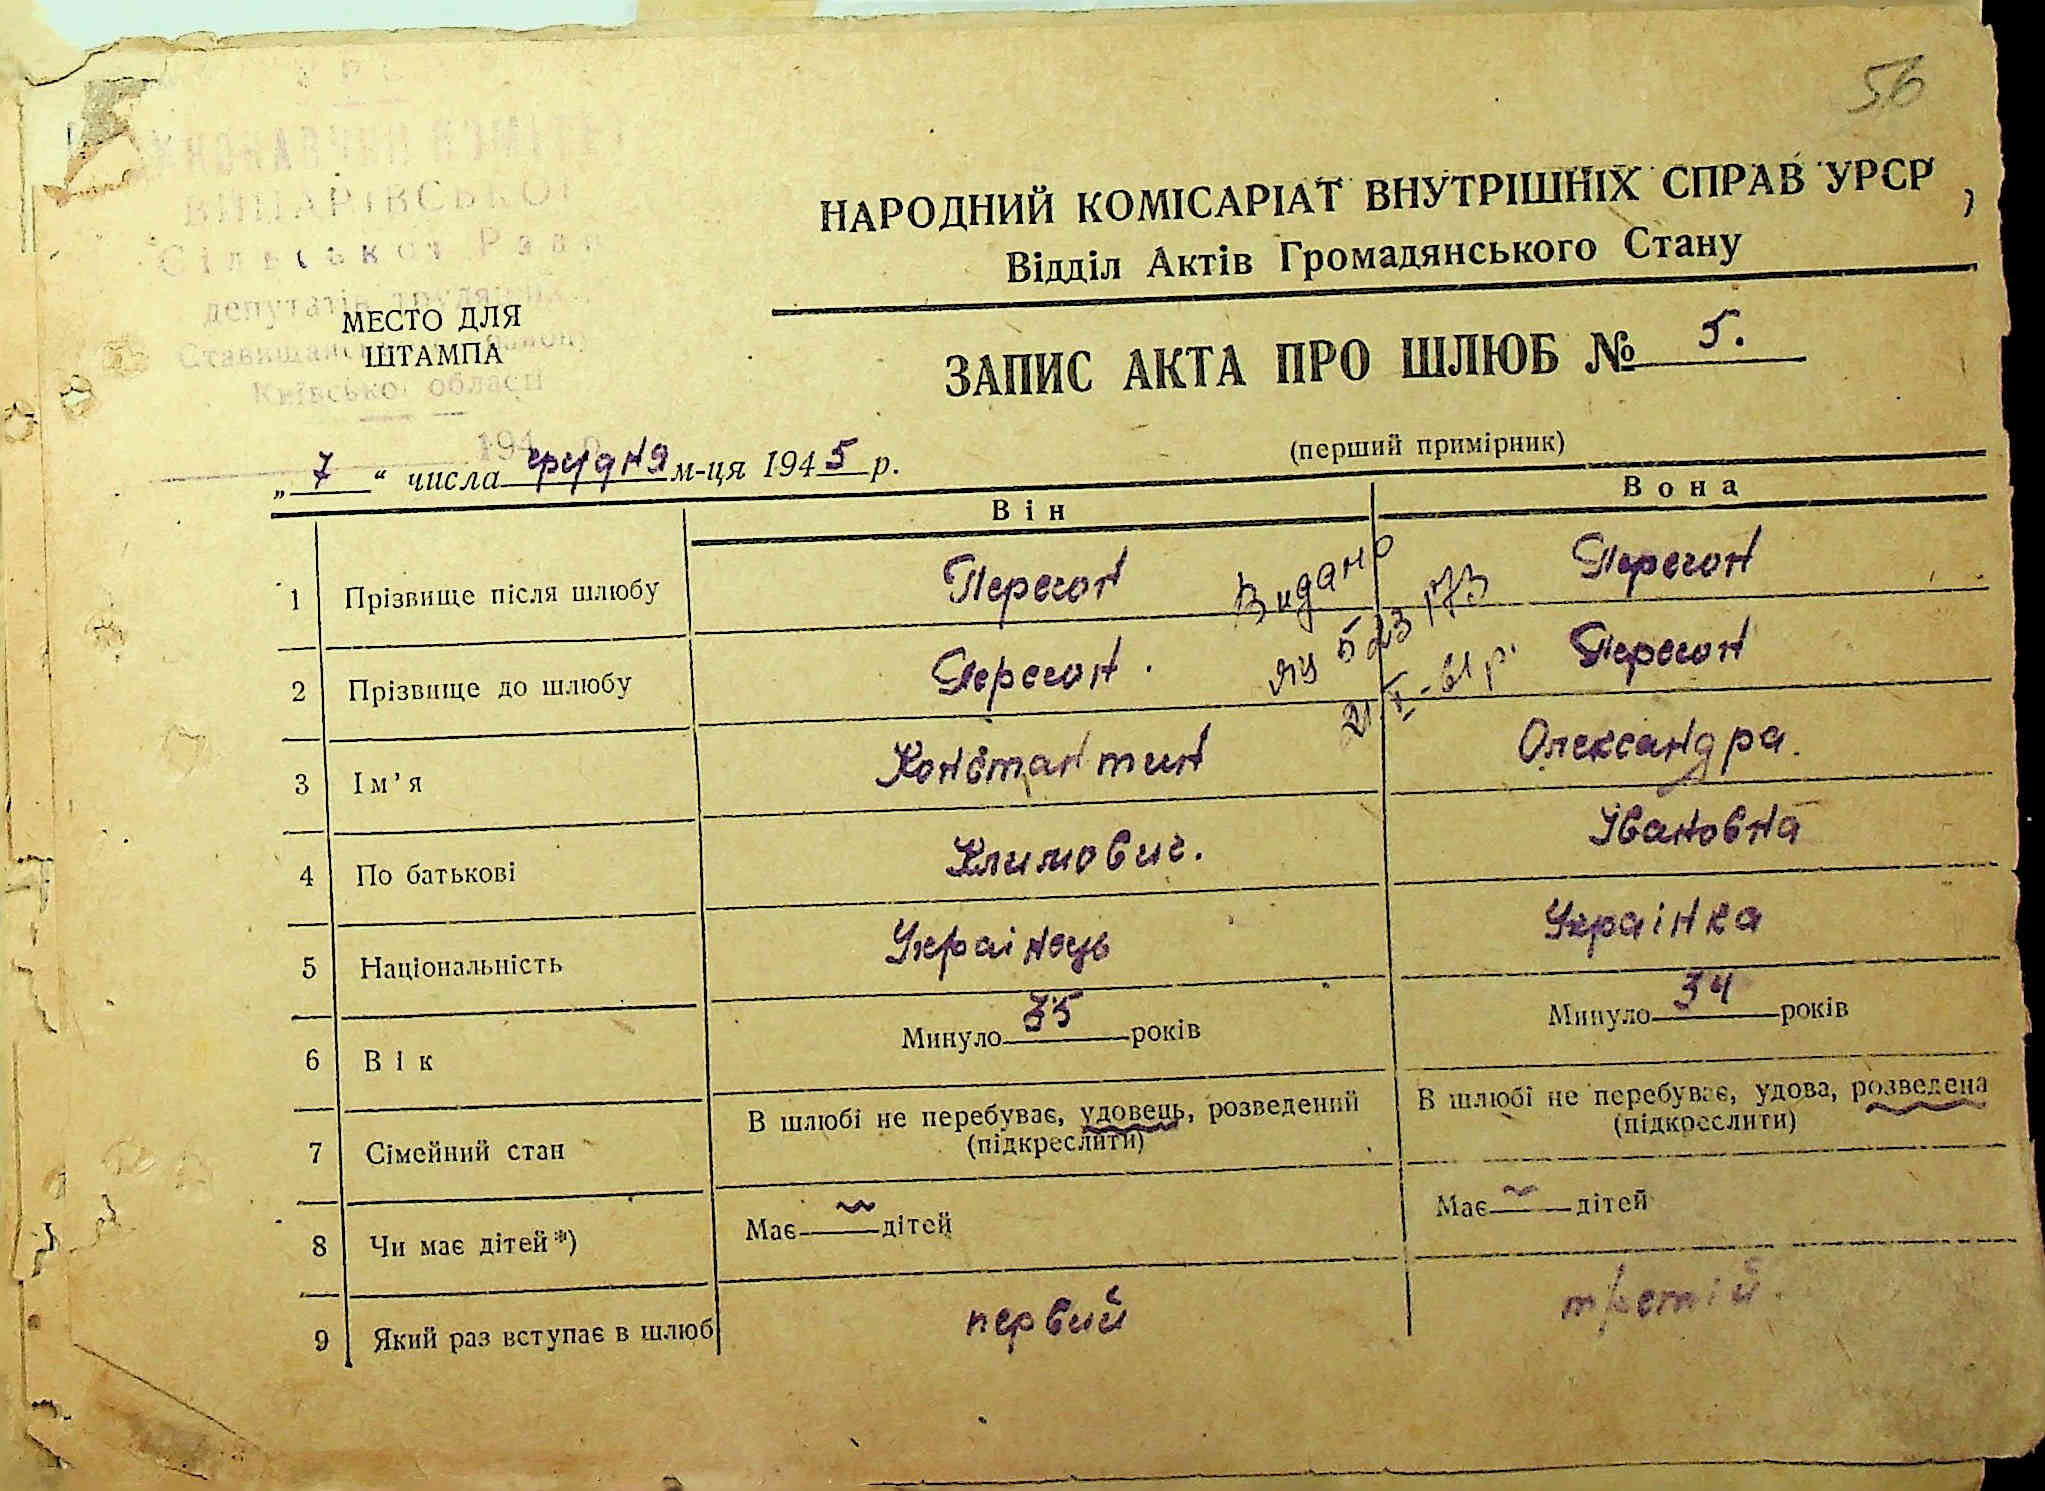 56
ВИКОНАВЧИЙ КОМІТЕТ
ВИНАРІВСЬКОЇ
Сільської Ради
депутатів трудящих
Ставищанського району
Київської області
194 р.
НАРОДНИЙ КОМІСАРІАТ ВНУТРІШНІХ СПРАВ УРСР
Відділ Актів Громадянського Стану
МЕСТО ДЛЯ
ШТАМПА
ЗАПИС АКТА ПРО ШЛЮБ № 5.
„ 7 “ числа грудня м-ця 1945 р.
(перший примірник)
Він Вона
1 Прізвище після шлюбу Перегон Перегон
Видано
523173
2 Прізвище до шлюбу Перегон. Перегон
3 Ім’я Константин Олександра.
4 По батькові Климович. Івановна
5 Національність Украінець Украінка
6 Вік Минуло 35 років Минуло 34 років
7 Сімейний стан В шлюбі не перебуває, удовець, розведений В шлюбі не перебуває, удова, розведена
(підкреслити) (підкреслити)
8 Чи має дітей*) Має ~ дітей Має ~ дітей
9 Який раз вступає в шлюб первий третій.